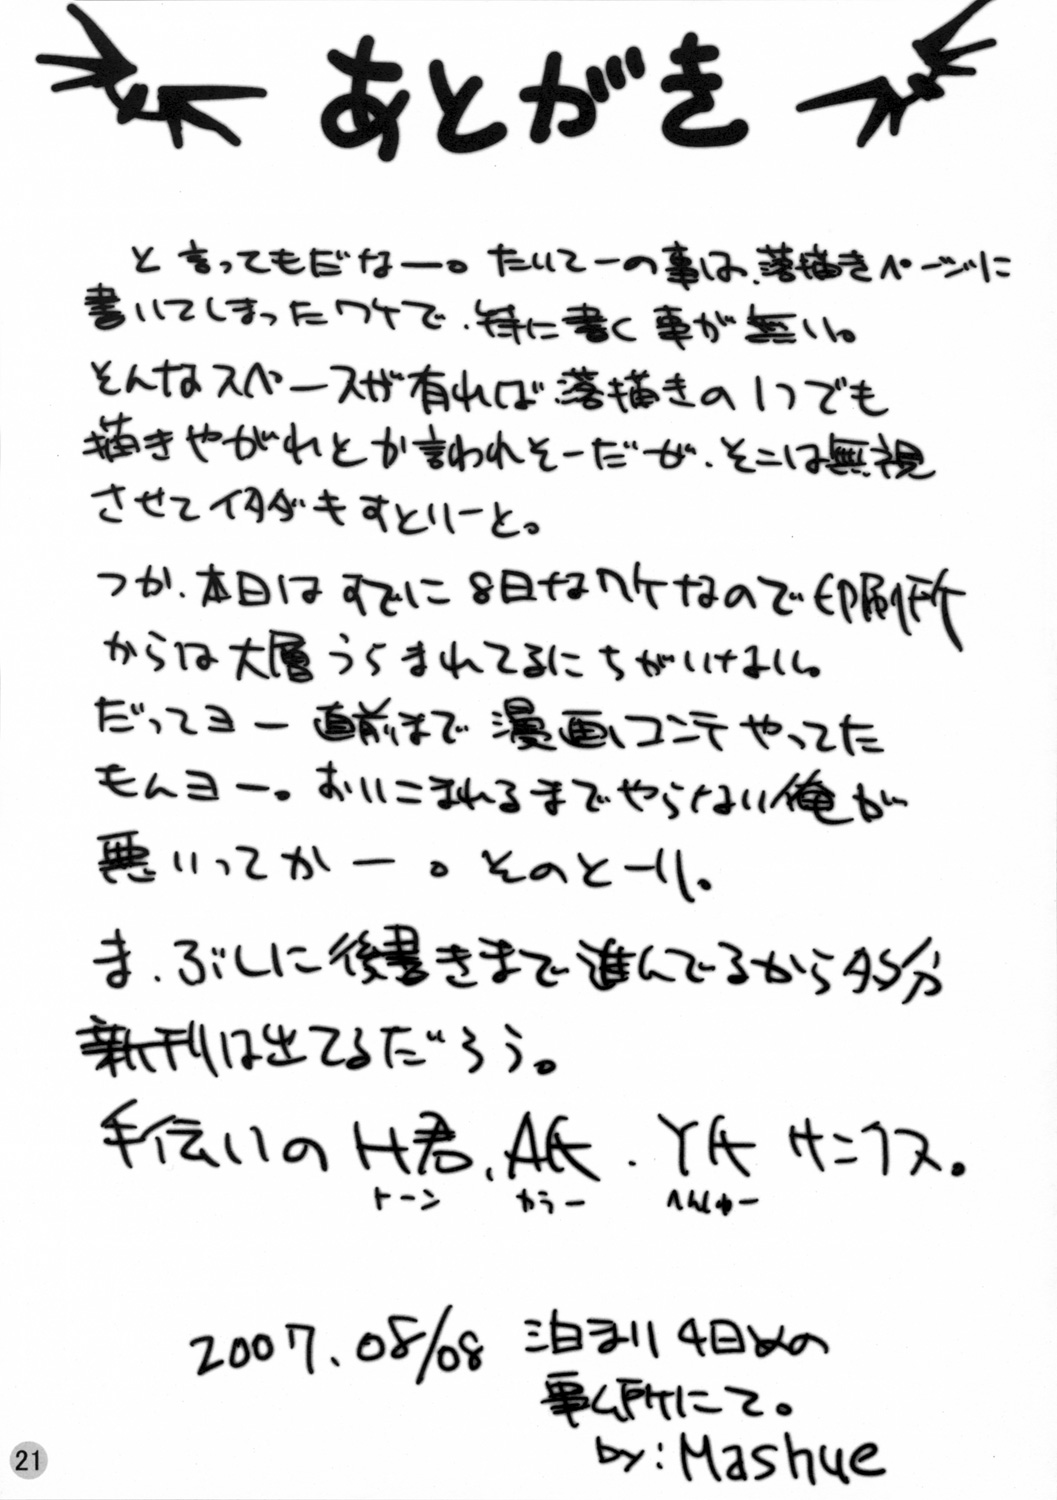 あとがき
と言ってもだなー。たいてーの事は、落描きページに
書いてしまったワケで、特に書く事が無い。
そんなスペースが有れば落描きの1つでも
描きやがれとか言われそーだが、そこは無視
させてイタダキすとりーと。
つか、本日はすでに8日なワケなので印刷所
からは大層うらまれてるにちがいけない。
だってヨー直前まで漫画コンテやってた
もんヨー。おいこまれるまでやらない俺が
悪いってかー。そのとーり。
ま、ぶじに後書きまで進んでるから多分
新刊は出てるだろう。
手伝いのH君、A氏、Y氏サンクス。
トーン カラー へんしゅー
2007.08/08 泊まり4日めの
事ム所にて。
by:Mashue
21